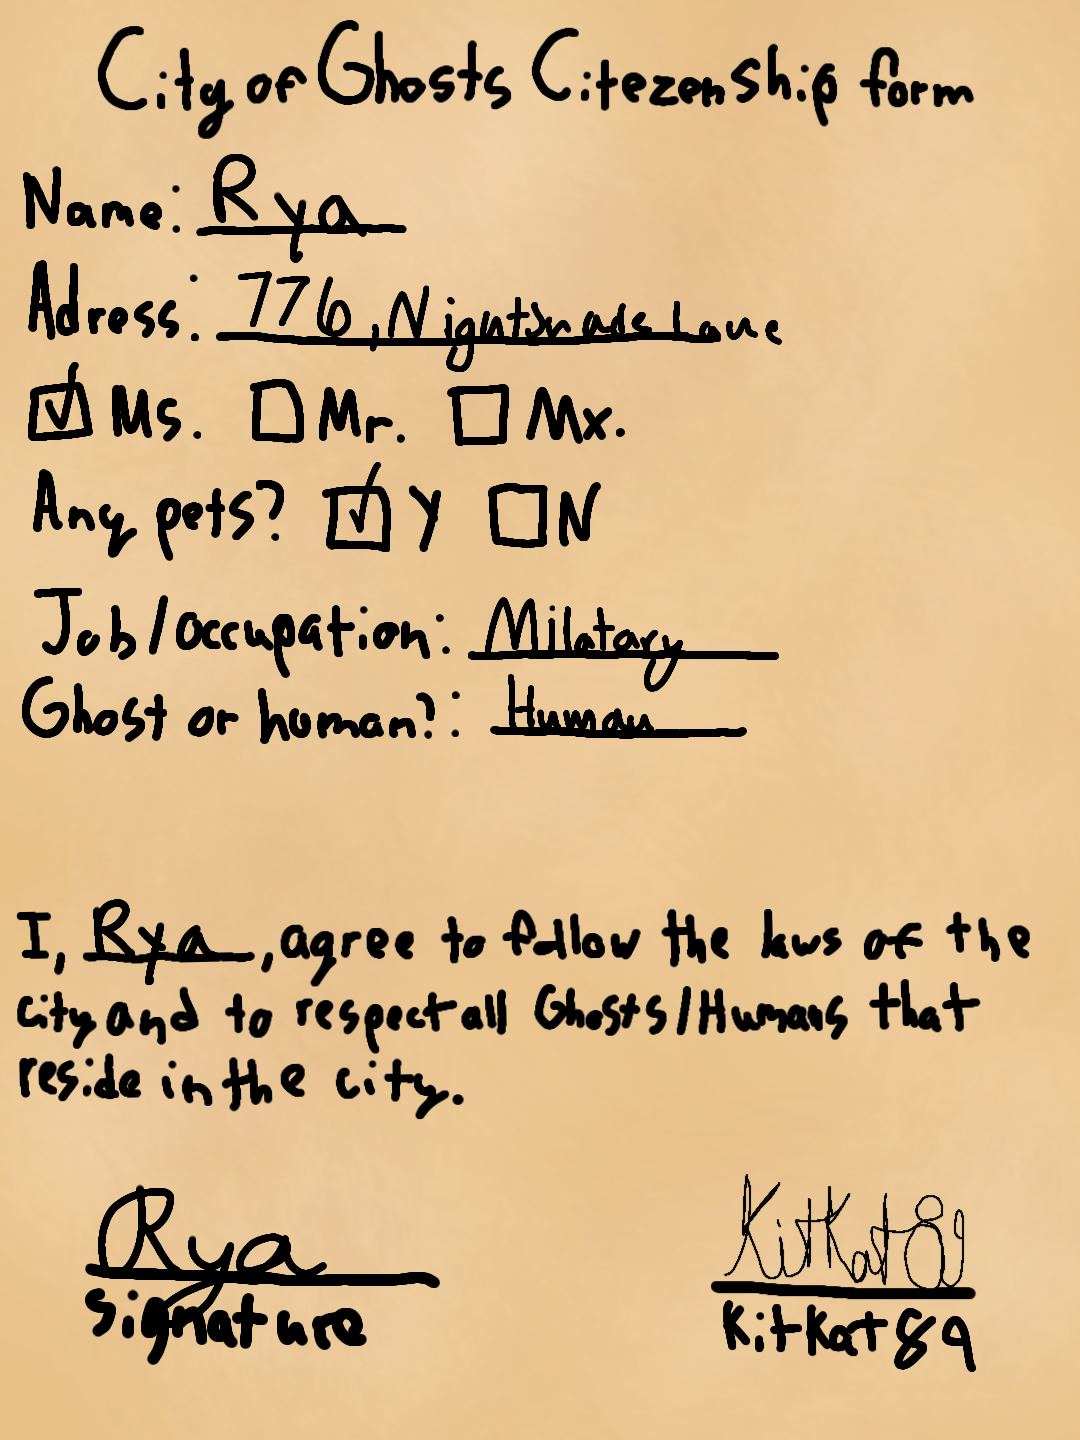 City of Ghosts Citezenship form
Name: Rya
Adress: 776, Nightshade Lane
Ms. Mr. Mx.
Any pets? Y N
Job/occupation: Milatary
Ghost or human?: Human
I, Rya, agree to follow the laws of the
city and to respect all Ghosts/Humans that
reside in the city.
Rya KitKat89
signature KitKat89